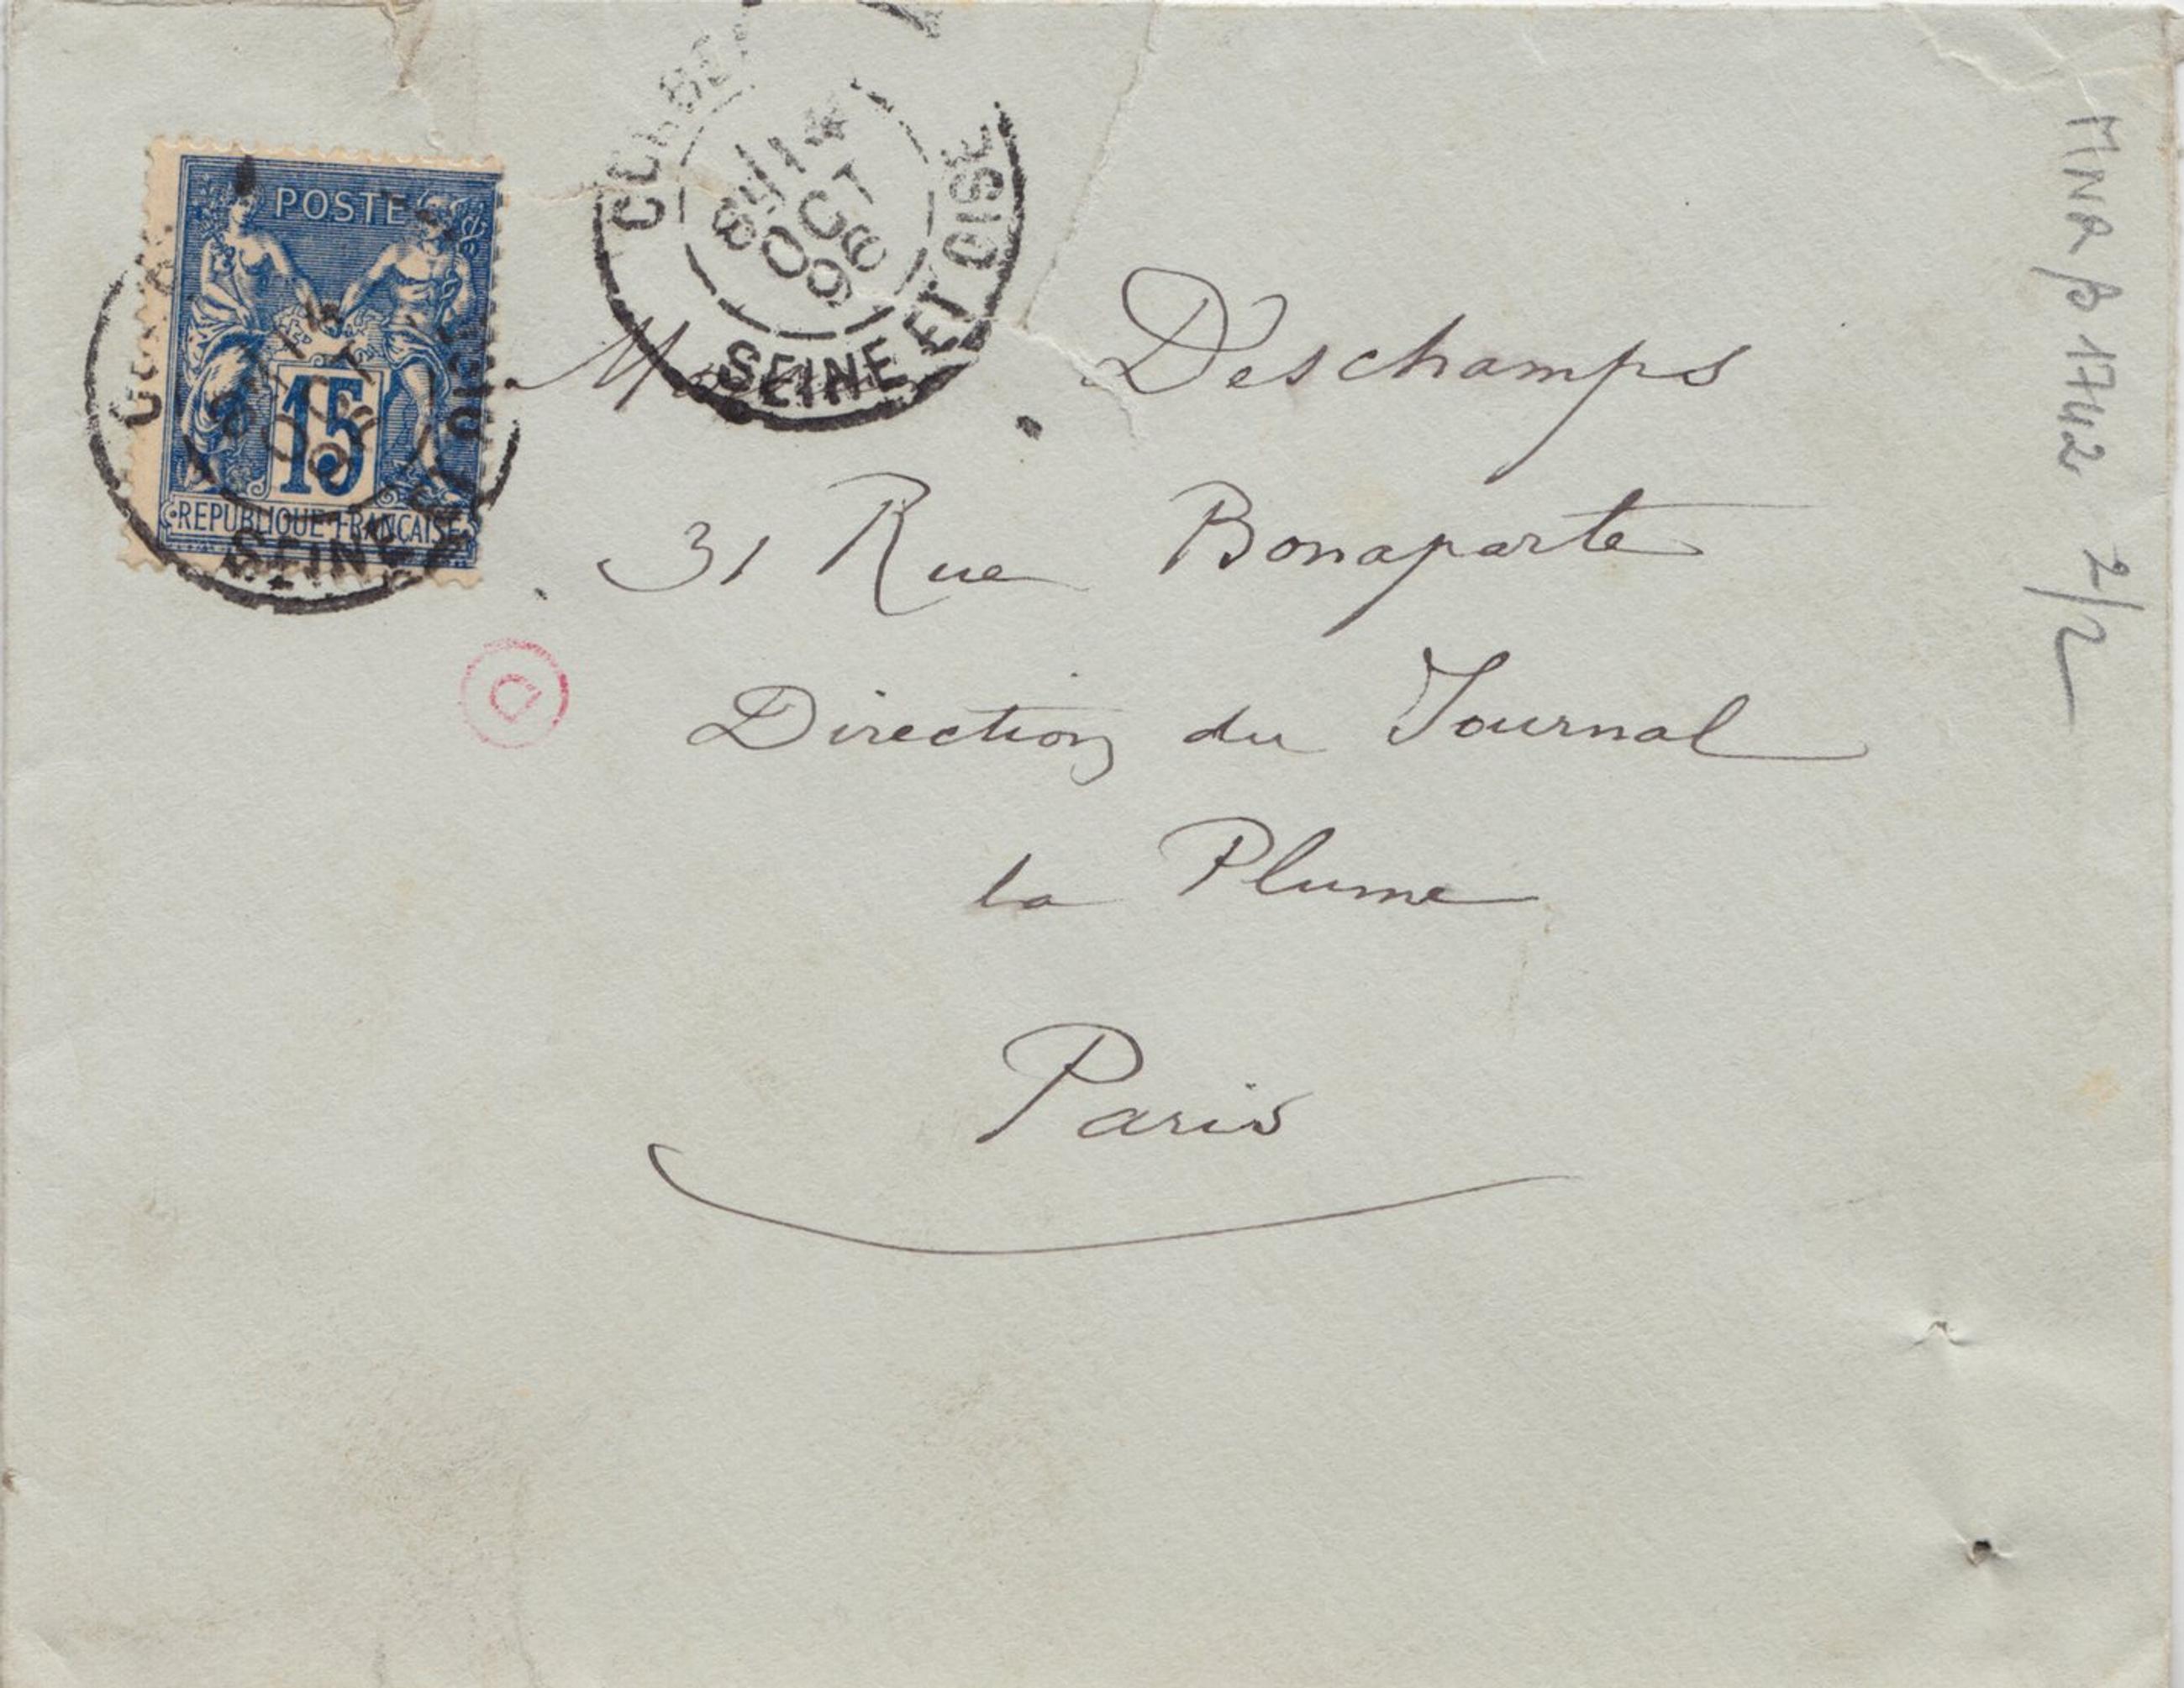 POSTE
15
REPUBLIQUE FRANCAISE
SEINE
SEINE ET OISE
OCT
Deschamps
31 Rue Bonaparte
Direction du Journal
la Plume
Paris
D
MNR β 1742 2/2